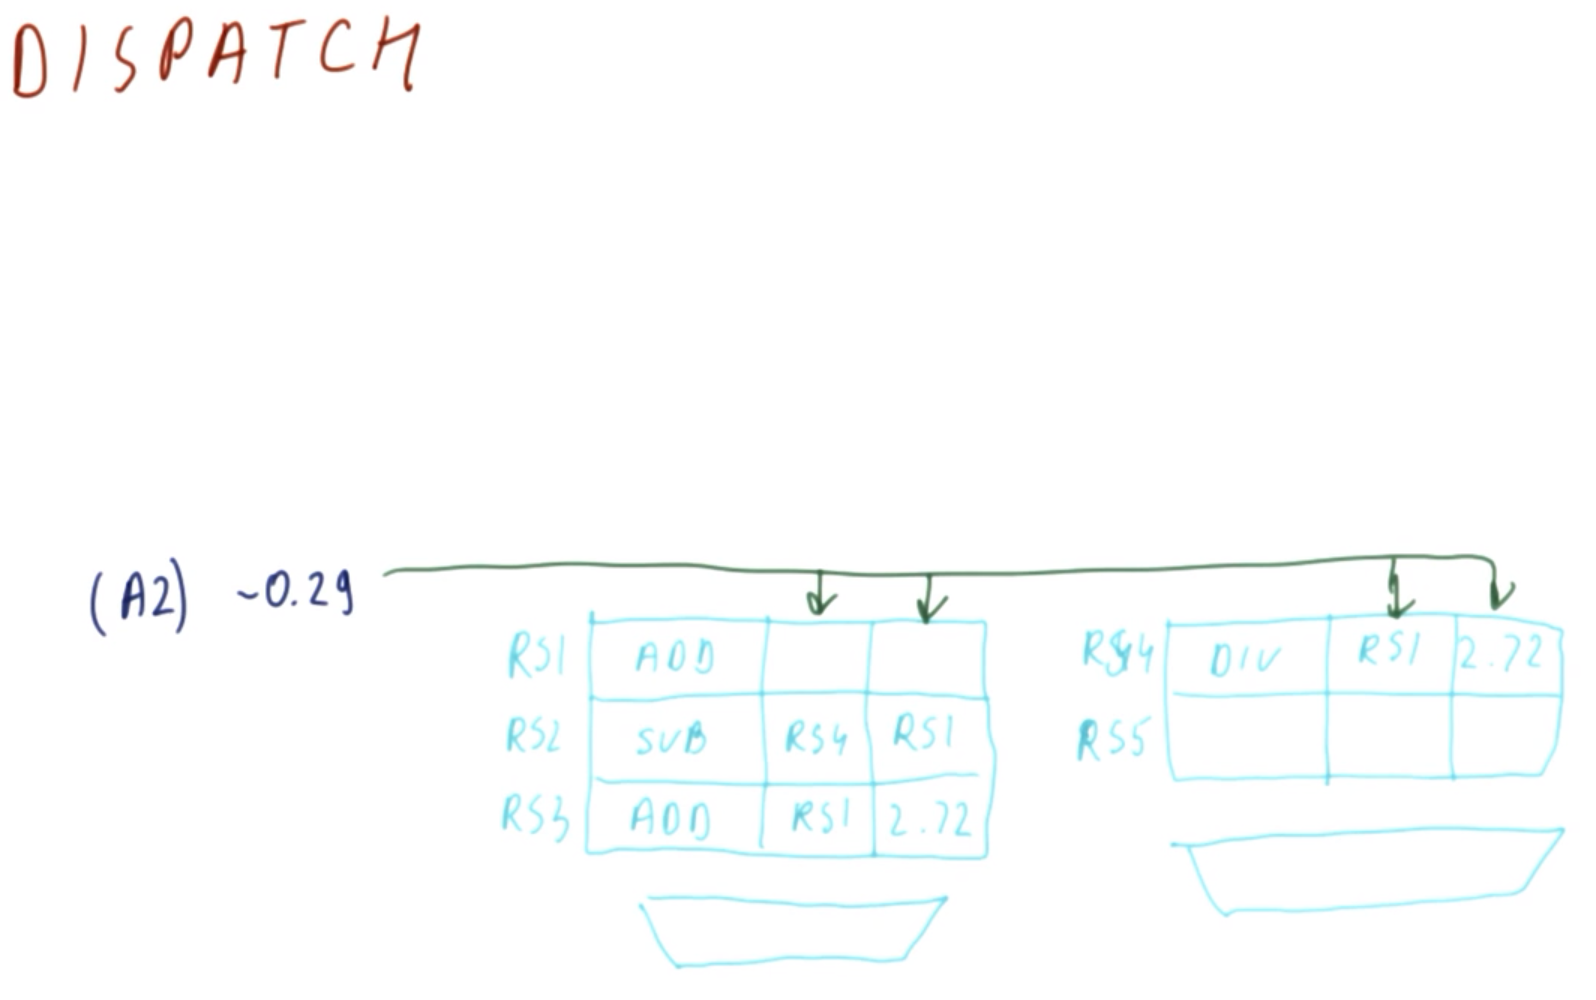 DISPATCH
(A2) -0.29
RS1 ADD
RS2 SUB RS4 RS1
RS3 ADD RS1 2.72
RS4 DIV RS1 2.72
RS5